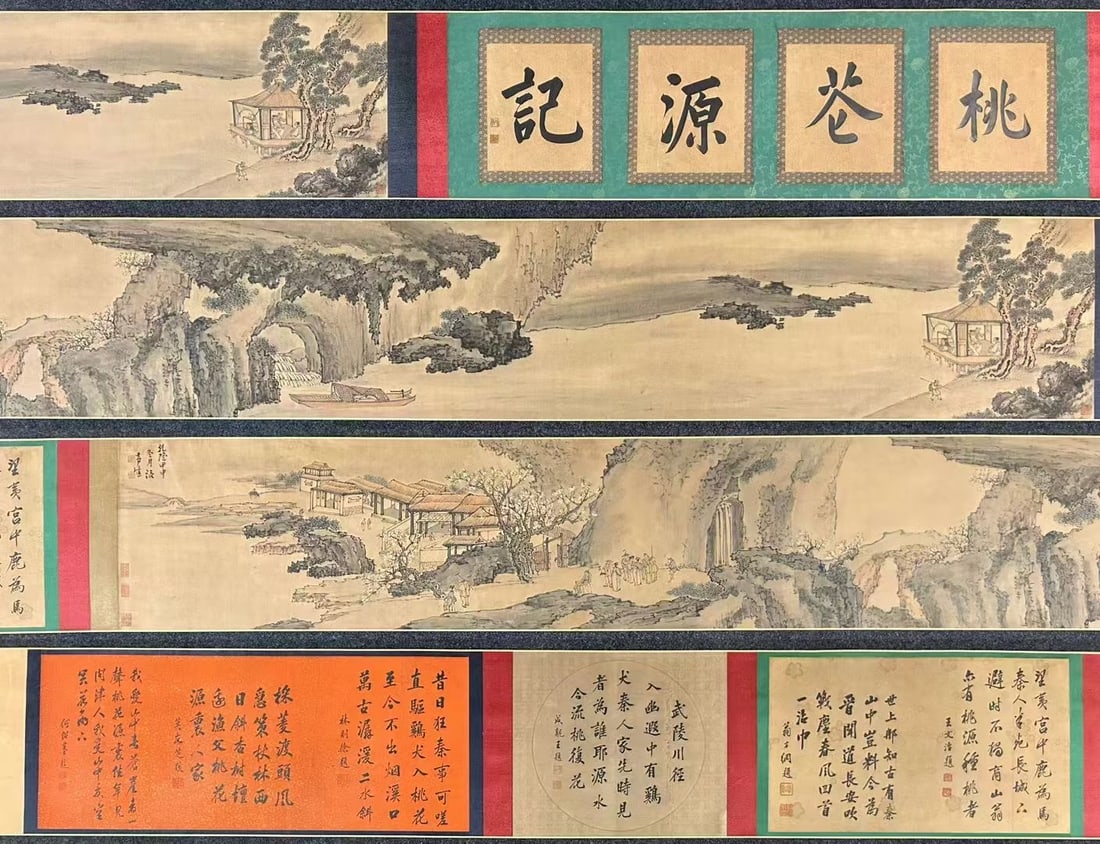 桃花源記
乾隆甲申
望夷宮中鹿為馬
望夷宮中鹿為馬
秦人半死長城下
避時不獨商山翁
亦有桃源種桃者
王文治題
世上那知古有秦
山中豈料今為
晉聞道長安吹
戰塵春風回首
一沾巾
翁方綱題
武陵川徑
入幽遐中有鷄
犬秦人家先時見
者為誰耶源水
今流桃復花
成親王題
昔日狂秦事可嗟
直驅鷄犬入桃花
至今不出烟溪口
萬古潺湲二水斜
林則徐題
採菱渡頭風
急策杖林西
日斜杏樹壇
邊漁父桃花
源裏人家
我愛山中春蒼崖鳥一
聲桃花源裏住罕見
問津人我愛山中夏空
冥花雨下
何紹基題